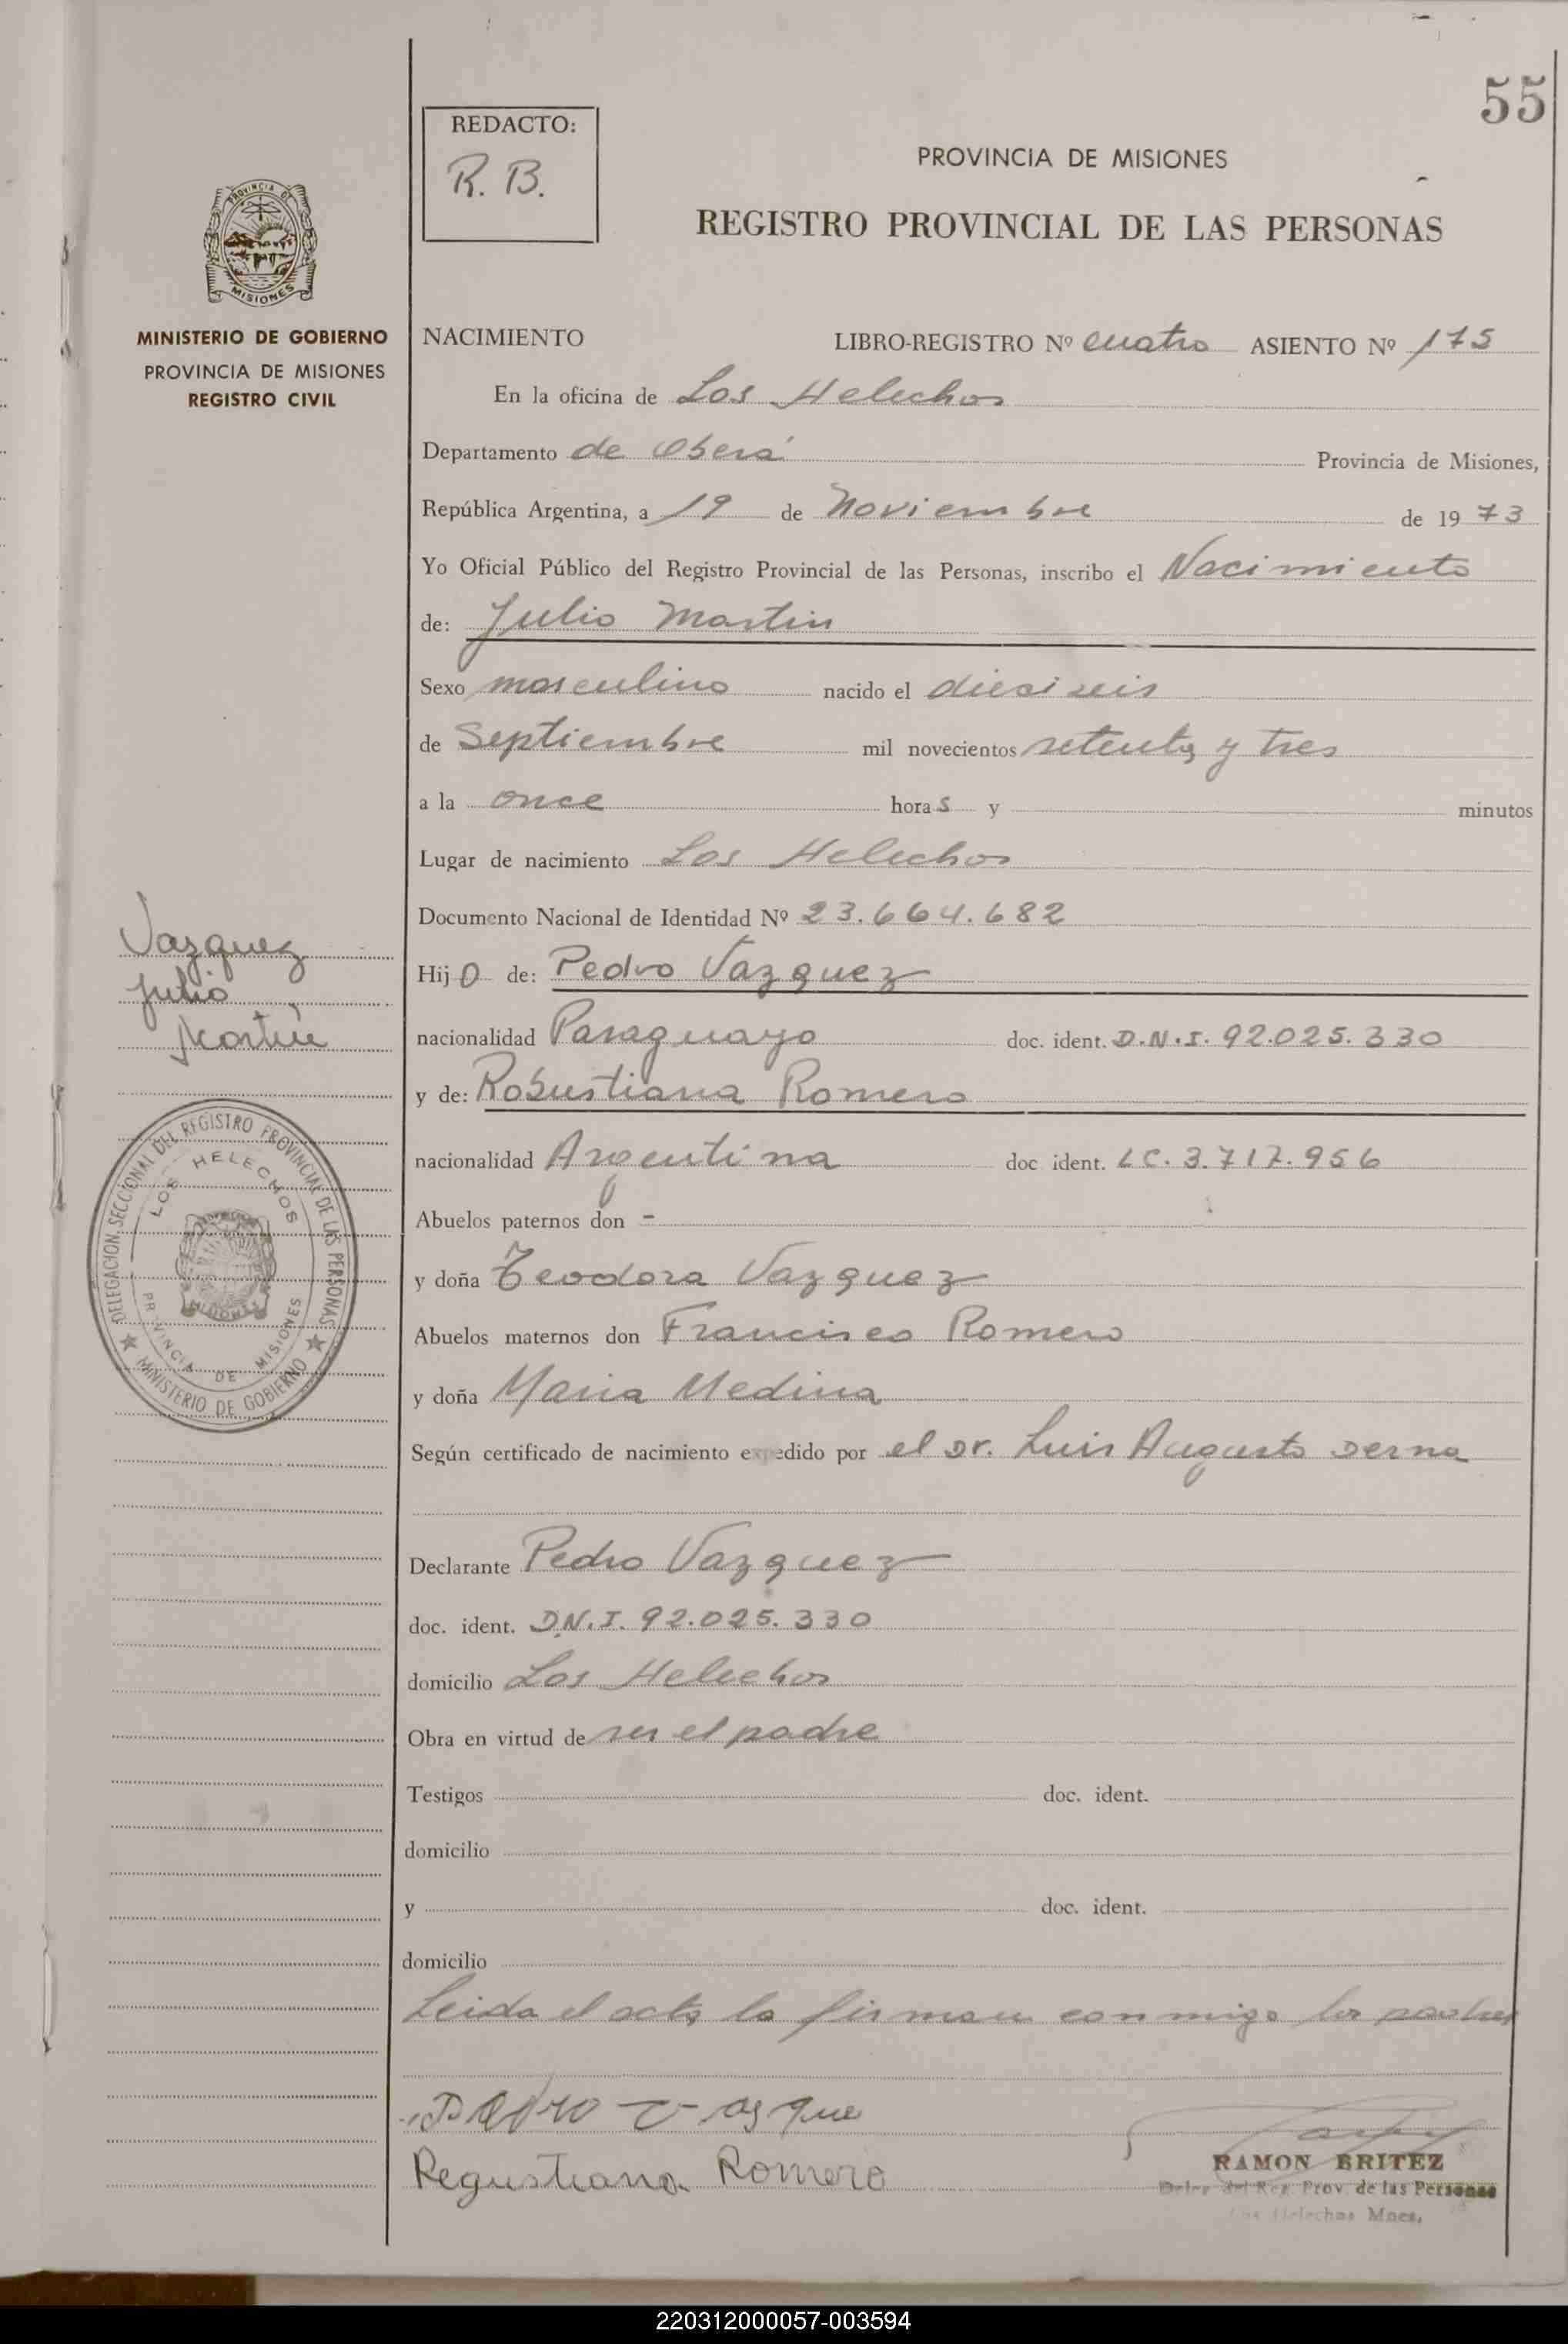 55
REDACTO:
R. B.
PROVINCIA DE MISIONES
REGISTRO PROVINCIAL DE LAS PERSONAS
PROVINCIA DE
MISIONES
MINISTERIO DE GOBIERNO
PROVINCIA DE MISIONES
REGISTRO CIVIL
NACIMIENTO LIBRO-REGISTRO Nº cuatro ASIENTO Nº 175
En la oficina de Los Helechos
Departamento de Oberá Provincia de Misiones,
República Argentina, a 19 de Noviembre de 1973
Yo Oficial Público del Registro Provincial de las Personas, inscribo el Nacimiento
de: Julio Martin
Sexo masculino nacido el dieciseis
de Septiembre mil novecientos setenta y tres
a la once horas y minutos
Lugar de nacimiento Los Helechos
Documento Nacional de Identidad Nº 23.664.682
Vazquez
Julio
Martín
Hijo de: Pedro Vazquez
nacionalidad Paraguayo doc. ident. D.N.I. 92.025.330
y de: Robustiana Romero
nacionalidad Argentina doc ident. LC. 3.717.956
DELEGACION SECCIONAL DEL REGISTRO PROVINCIAL DE LAS PERSONAS
LOS HELECHOS
MISIONES
PROVINCIA DE MISIONES
MINISTERIO DE GOBIERNO
Abuelos paternos don -
y doña Teodora Vazquez
Abuelos maternos don Francisco Romero
y doña Maria Medina
Según certificado de nacimiento expedido por el Dr. Luis Augusto Derna
Declarante Pedro Vazquez
doc. ident. D.N.I. 92.025.330
domicilio Los Helechos
Obra en virtud de ser el padre
Testigos doc. ident.
domicilio
y doc. ident.
domicilio
Leida el acta la firman conmigo los padres
Pedro Vasque
Regustiana Romero
RAMON BRITEZ
Deleg del Reg. Prov. de las Personas
Los Helechos Mnes.
220312000057-003594